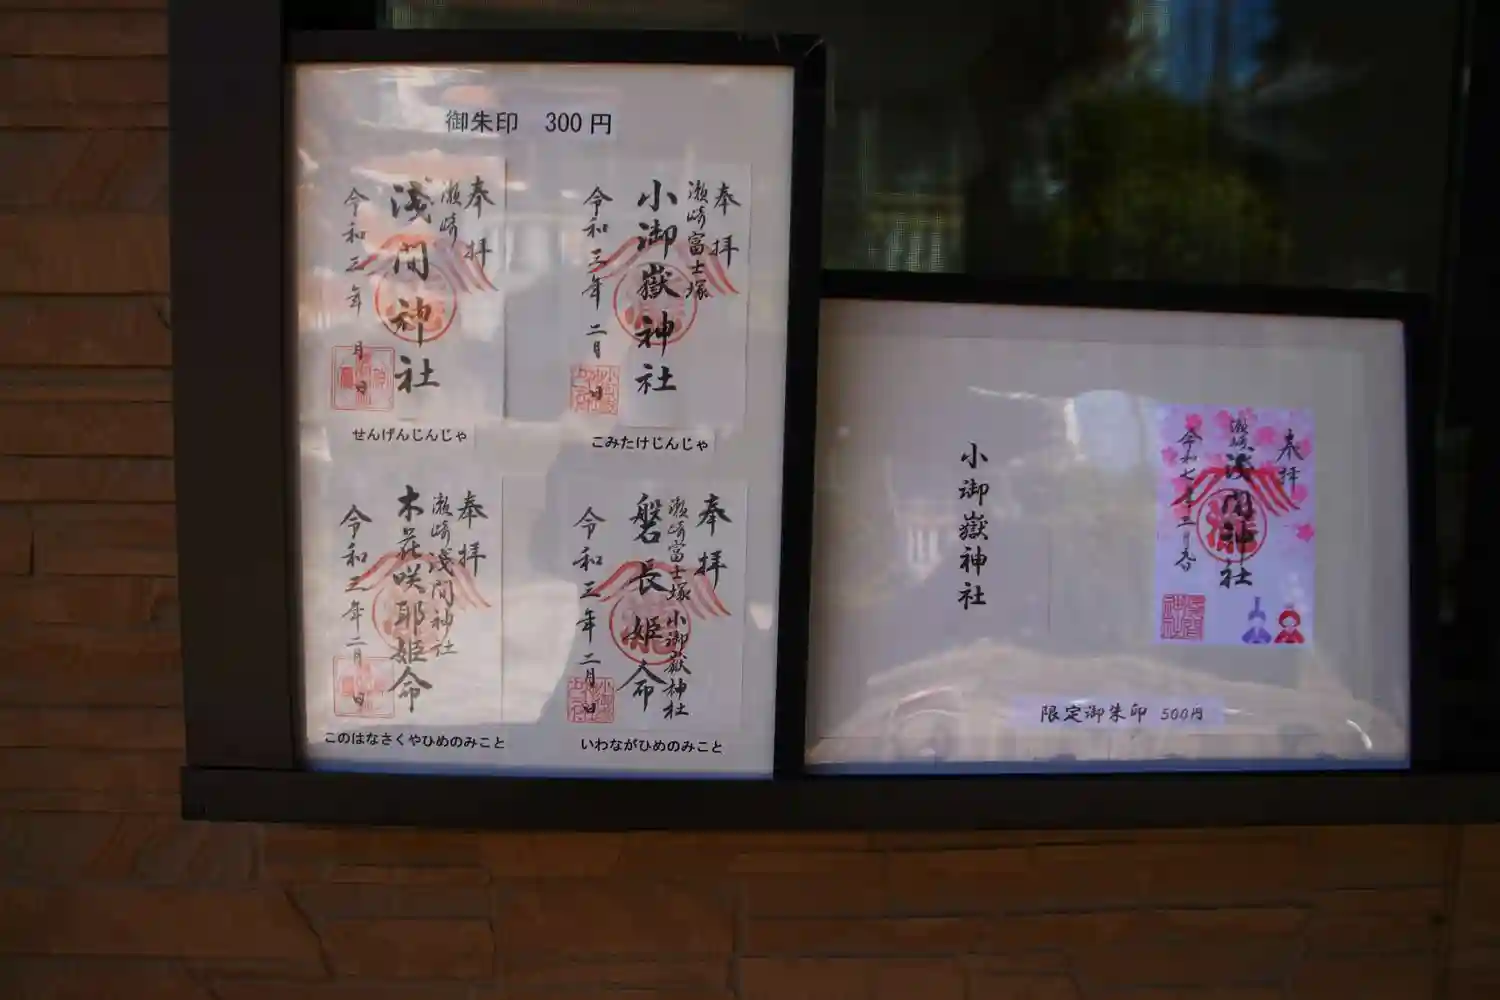 御朱印 300円
奉拝
瀬崎
浅間神社
令和三年 月 日
せんげんじんじゃ
奉拝
瀬崎富士塚
小御嶽神社
令和三年二月 日
こみたけじんじゃ
奉拝
瀬崎浅間神社
木花咲耶姫命
令和三年二月 日
このはなさくやひめのみこと
奉拝
瀬崎富士塚 小御嶽神社
磐長姫命
令和三年二月 日
いわながひめのみこと
小御嶽神社
奉拝
瀬崎
浅間神社
令和七年三月
限定御朱印 500円